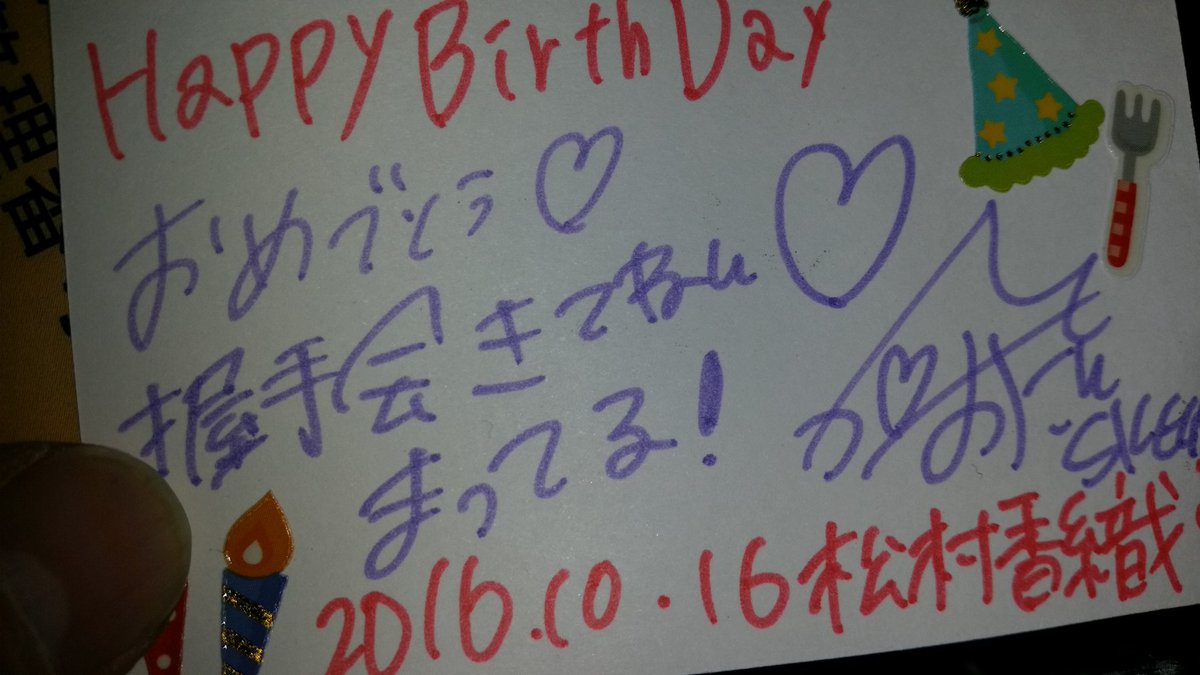 Happy BirthDay
おめでとう♡
握手会きてねん♡
まってる!
かおたん
SKE48
2016.10.16 松村香織